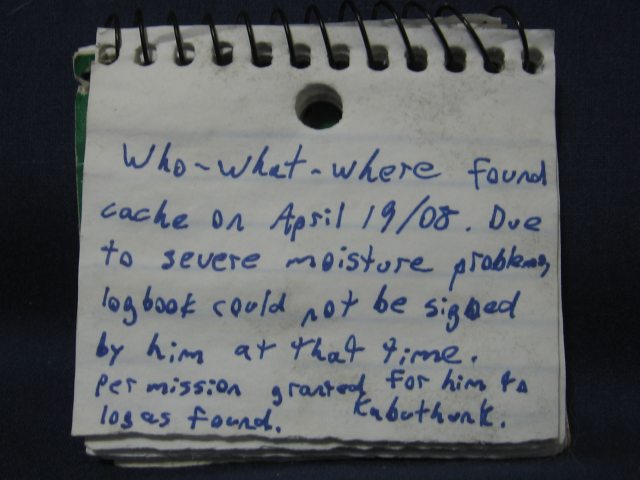 Who-what-where found
cache on April 19/08. Due
to severe moisture problems,
logbook could not be signed
by him at that time.
permission granted for him to
log as found. Kabuthunk.